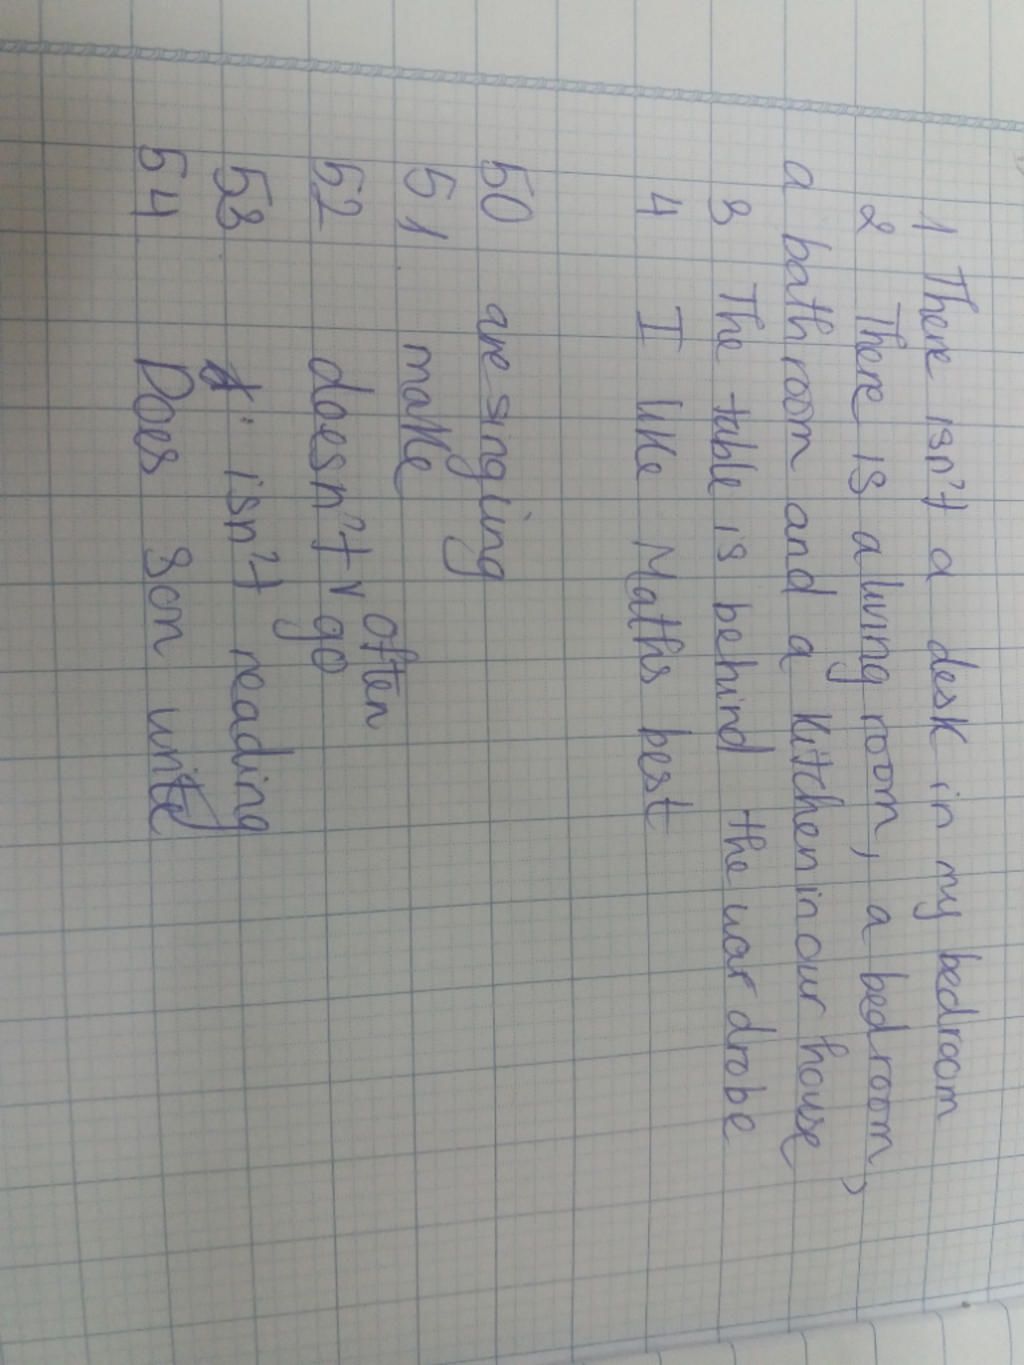 1 There isn't a desk in my bedroom
2 There is a living room, a bedroom,
a bathroom and a kitchen in our house
3 The table is behind the wardrobe
4 I like Maths best
50 are singing
51 make
often
52 doesn't v go
53 isn't reading
54 Does Son write